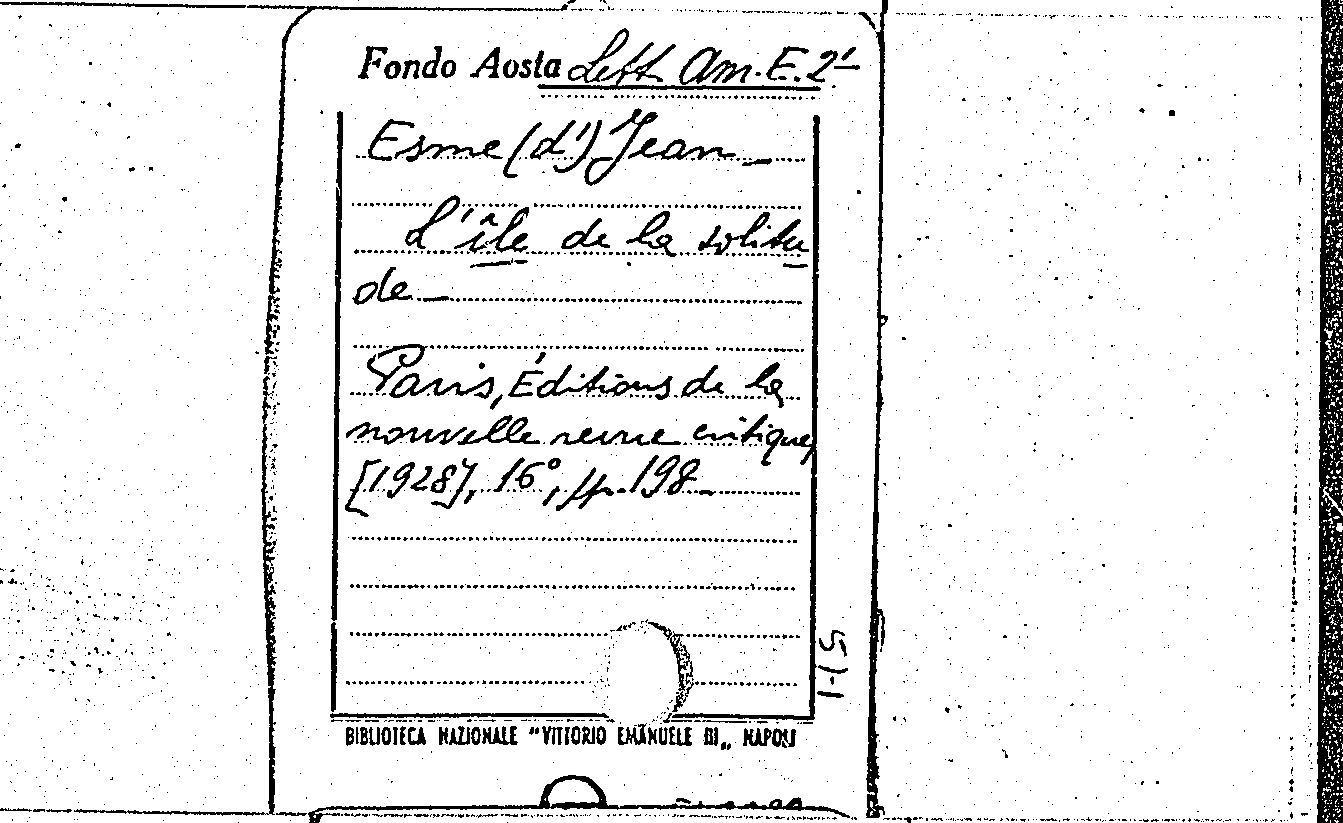 Fondo Aosta Lett. Am. E. 21
Esme (d') Jean_
L'île de la solitu
de_
Paris, Éditions de la
nouvelle revue critique,
[1928], 16°, pp. 198_
BIBLIOTECA NAZIONALE "VITTORIO EMANUELE III„ NAPOLI